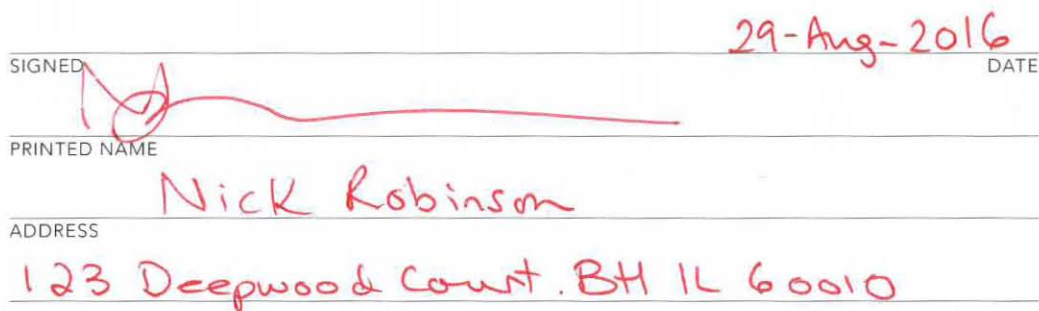 29-Aug-2016
SIGNED DATE
PRINTED NAME
Nick Robinson
ADDRESS
123 Deepwood Court. BH IL 60010